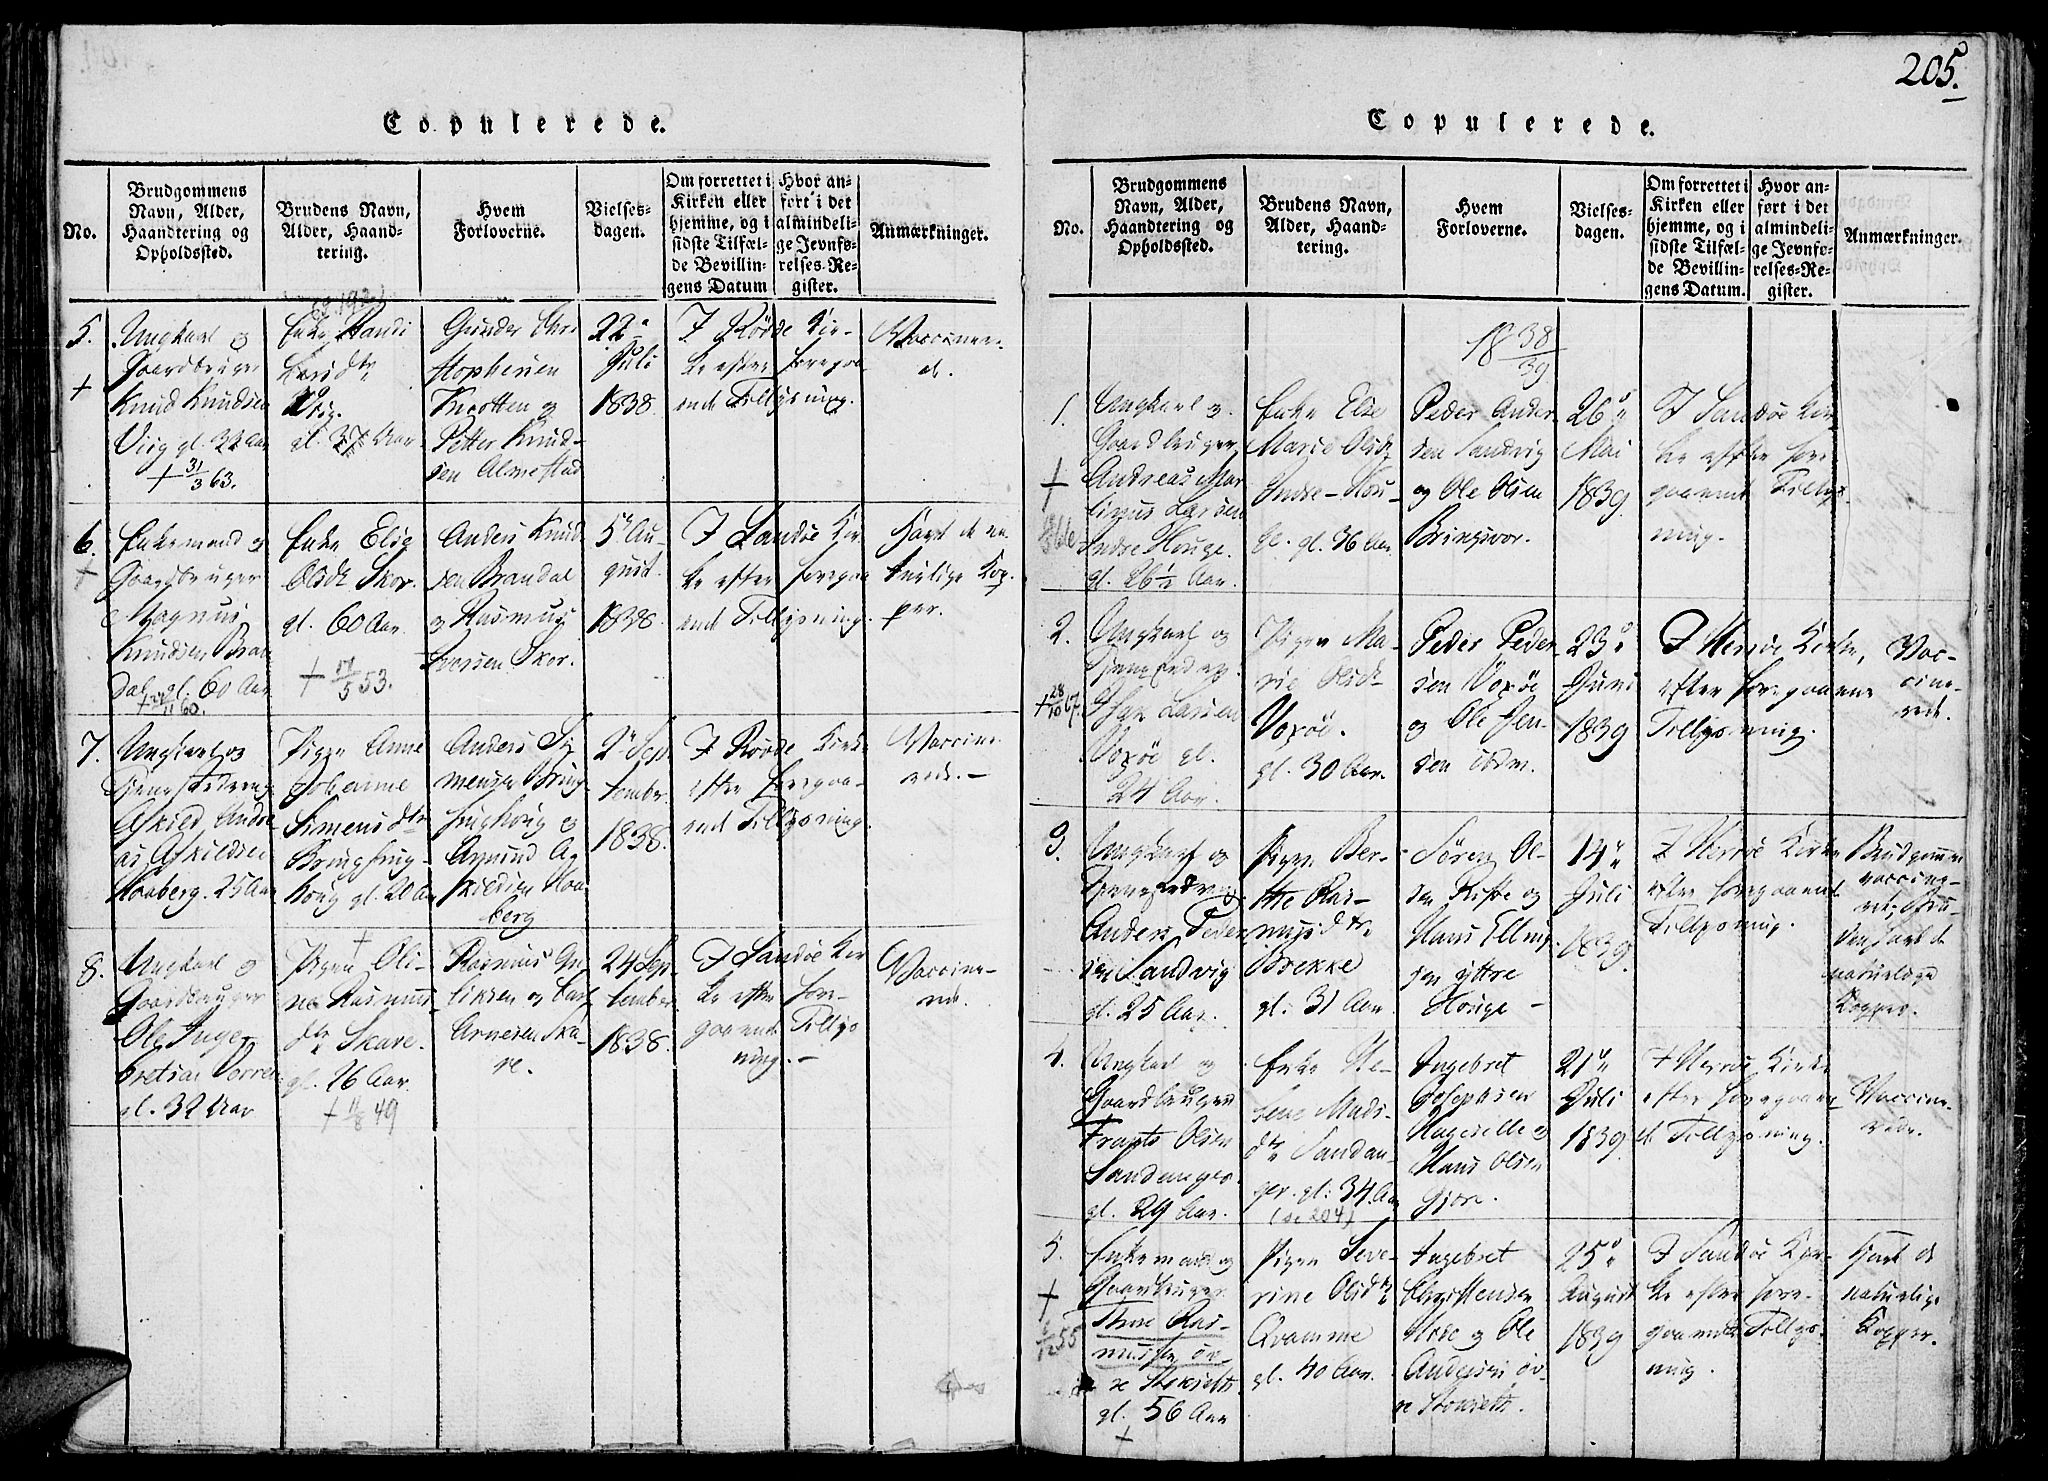 205.
Copulerede.
No.
Brudgommens
Navn, Alder,
Haandtering og
Opholdssted.
Brudens Navn,
Alder, Haand-
tering.
Hvem
Forloverne.
Vielses-
dagen.
Om forrettet i
Kirken eller
hjemme, og i
sidste Tilfæl-
de Bevillin-
gens Datum
Hvor an-
ført i det
almindeli-
ge Jevnfø-
relses-Re-
gister.
Anmærkninger.
5.
+
Ungkarl og
Gaardbruger
Knud Knudsen
gl. 32 Aar
+ 31/3 63.
Enke Randi
Larsdtr
gl. 37 Aar
Gunder Chri
stophersen
og
Petter Knud-
sen Almestad
22de
Juli
1838
I Rövde Kir-
ke efter foregaa-
ende Tillysning.
Vaccinere-
de.
6.
+
Enkemand og
Gaardbruger
Magnus
Knudsen Bran
dal gl. 60 Aar
+ 60.
Enke Elie
Olsdtr Skor.
gl. 60 Aar.
+ 17/5 53.
Anders Knud
sen Brandal
og Rasmus
Iversen Skor.
5te Au-
gust.
1838
I Sandöe Kir
ke efter foregaa
ende Tillysning.
Havt de na-
turlige Kop-
per.
7.
Ungkarl og
Tjenestedreng
Askild Andre-
as Askildsen
Haaberg. 25 Aar
Pigen Anne
Johanne
Simensdtr
gl. 20 Aar
Anders Si
mensen
og
Amund As
kildsen Haa
berg
2de Sep
tember.
1838.
I Rövde Kirke
efter foregaa-
ende Tillysning.
Vaccine-
rede. -
8.
Ungkarl og
Gaardbruger
Ole Inge-
bretsen
gl. 32 Aar
+
Pigen Oli-
ne Rasmus
dtr Skare.
gl. 26 Aar.
+ 11/8 49
Rasmus
og
Arnesen Ska-
re.
24 Sep
tember
1838.
I Sandöe Kir
ke efter fore-
gaaende Tillys
ning. -
Vaccine-
rede.
Copulerede.
No.
Brudgommens
Navn, Alder,
Haandtering og
Opholdssted.
Brudens Navn,
Alder, Haand-
tering.
Hvem
Forloverne.
Vielses-
dagen.
Om forrettet i
Kirken eller
hjemme, og i
sidste Tilfæl-
de Bevillin-
gens Datum.
Hvor an-
ført i det
almindeli-
ge Jevnfø-
relses-Re-
gister.
Anmærkninger.
18 38/39
1.
+
Ungkarl og
Gaardbruger
Andreas Mar
tinus Larsen
Indre Houge.
gl. 26 1/2 Aar.
Enke Else
Marie Olsdtr
Indre-Hou-
ge. gl. 36 Aar
Peder Ander
sen Sandvig
og Ole Olsen
Bringsvor.
26de
Mai
1839
I Sandöe Kir
ke efter fore
gaaende Tillys-
ning.
2.
+ 28/10 67.
Ungkarl og
Tjenestedreng
Larsen
Voxöe gl.
24 Aar.
Pigen Ma-
rie Olsdtr
Voxöe.
gl. 30 Aar.
Peder Peder-
sen Voxöe
og Ole Jen-
sen ibdm.
23de
Juni
1839
I Herröe Kirke,
efter foregaaende
Tillysning.
Vac-
cine-
rede.
3.
Ungkarl og
Tjenestedreng
Anders Peder
sen Sandvig
gl. 25 Aar.
Pigen Ber-
the Ras-
musdtr.
Brekke
gl. 31 Aar
Sören Ol-
sen Riste og
Hans Elling-
sen yttre
Houge -
14de
Juli
1839
I Herröe Kirke
efter foregaaende
Tillysning.
Brudgommen
vaccine-
ret; Bru-
den havt de
naturlige
Kopper.
4.
Ungkarl og
Gaardbruger
Frants Olsen
Sandanger
gl. 29 Aar.
Enke
Mads-
dtr Sandan-
ger. gl. 34 Aar
(se 204)
Ingebret
Josephsen
og
Hans Olsen
Gjöre.
21de
Juli
1839
I Herröe Kirke
efter foregaaen-
de Tillysning.
Vaccine-
rede.
5.
+
55
Enkemand og
Gaardbruger
Thore Ras-
mussen öv-
re
gl. 56 Aar
+
Pigen Seve-
rine Olsdtr
Qvamme
gl. 40 Aar.
Ingebret
Christensen
og Ole
Andersen öv-
re
25de
August
1839
I Sandöe Kir-
ke efter fore-
gaaende Tillys-
ning.
Havt de
naturlige
Kopper.